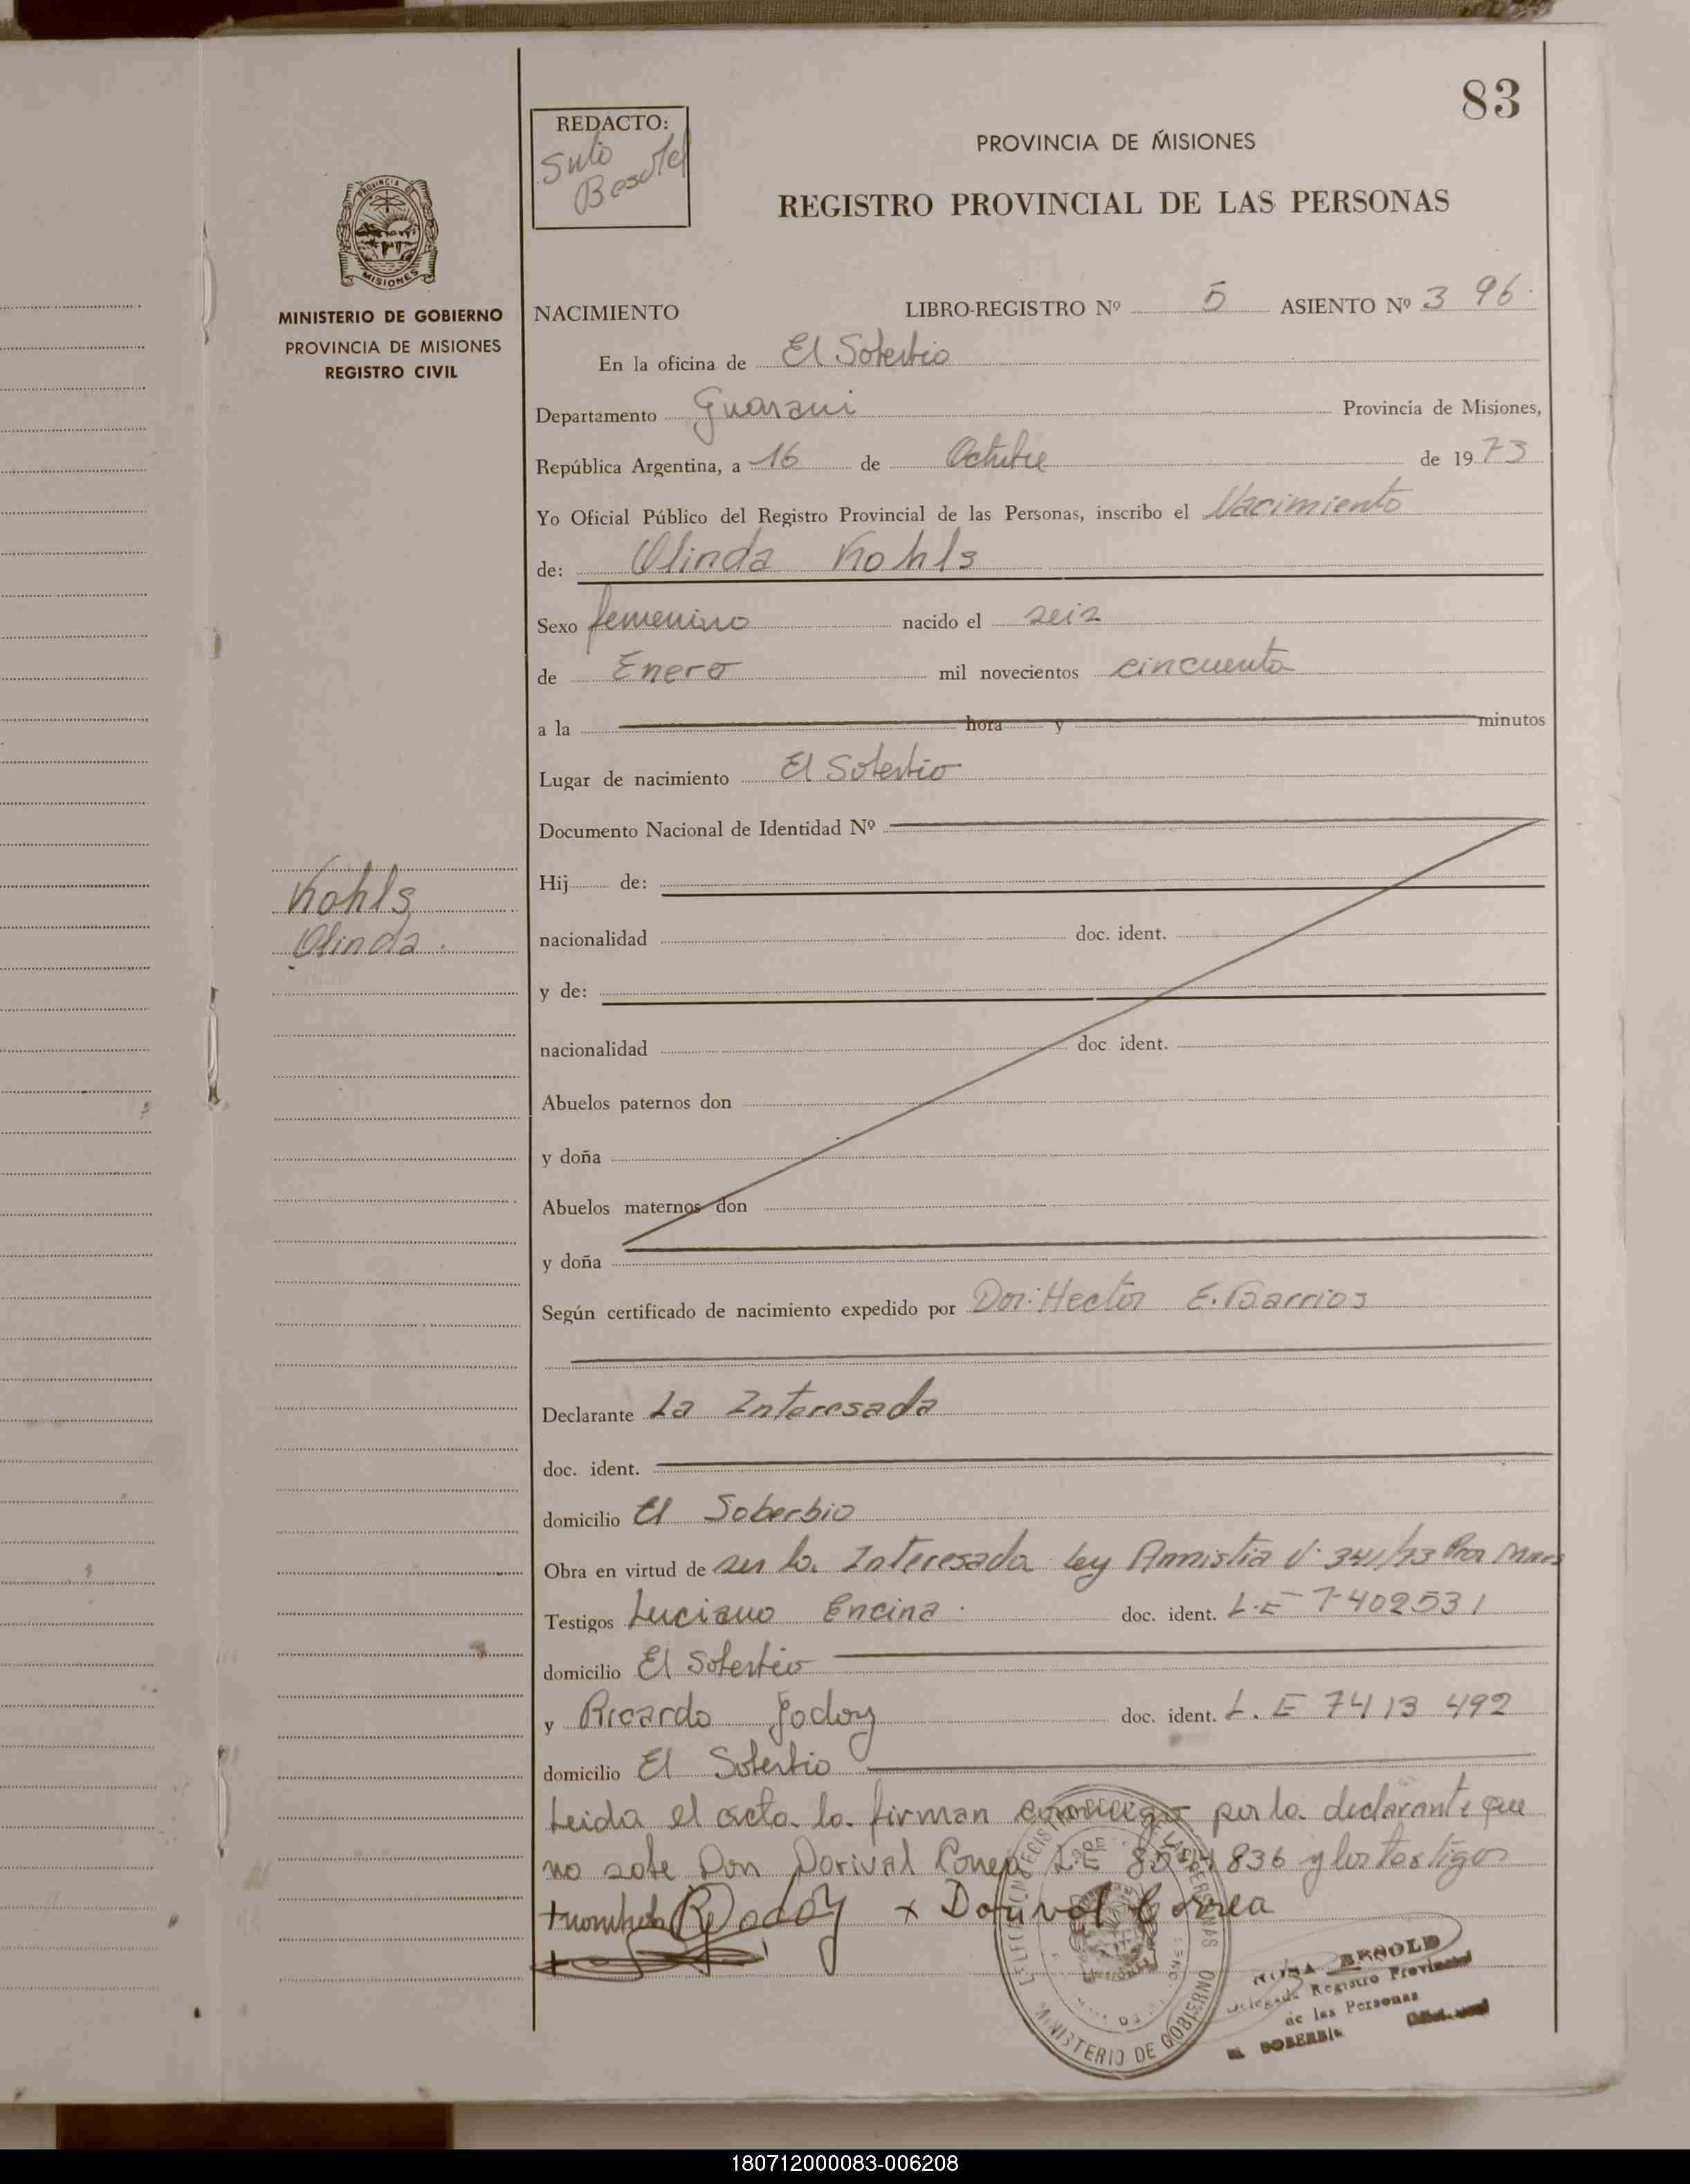 83
REDACTO:
PROVINCIA DE MISIONES
REGISTRO PROVINCIAL DE LAS PERSONAS
PROVINCIA DE
MISIONES
MINISTERIO DE GOBIERNO
PROVINCIA DE MISIONES
REGISTRO CIVIL
NACIMIENTO LIBRO-REGISTRO Nº 5 ASIENTO Nº 396.
En la oficina de El Soberbio
Departamento Guarani Provincia de Misiones,
República Argentina, a 16 de Octubre de 1973
Yo Oficial Público del Registro Provincial de las Personas, inscribo el Nacimiento
de: Olinda Kohls
Sexo femenino nacido el seis
de Enero mil novecientos cincuenta
a la hora y minutos
Lugar de nacimiento El Soberbio
Documento Nacional de Identidad Nº
Kohls
Olinda.
Hij de:
nacionalidad doc. ident.
y de:
nacionalidad doc. ident.
Abuelos paternos don
y doña
Abuelos maternos don
y doña
Según certificado de nacimiento expedido por Dor: Hector E. Barrios
Declarante La Interesada
doc. ident.
domicilio El Soberbio
Obra en virtud de ser la Interesada Ley Amistia
Testigos Luciano Encina. doc. ident. L.E 7402531
domicilio El Soberbio
y Ricardo Godoy doc. ident. L.E 7413492
domicilio El Soberbio
Leida el acta la firman por la declarante que
no sabe Don Dorival Correa L.E 836 y los testigos
Godoy x Dorival Correa
MINISTERIO DE GOBIERNO
Registro Provincial
de las Personas
SOBERBIO
180712000083-006208